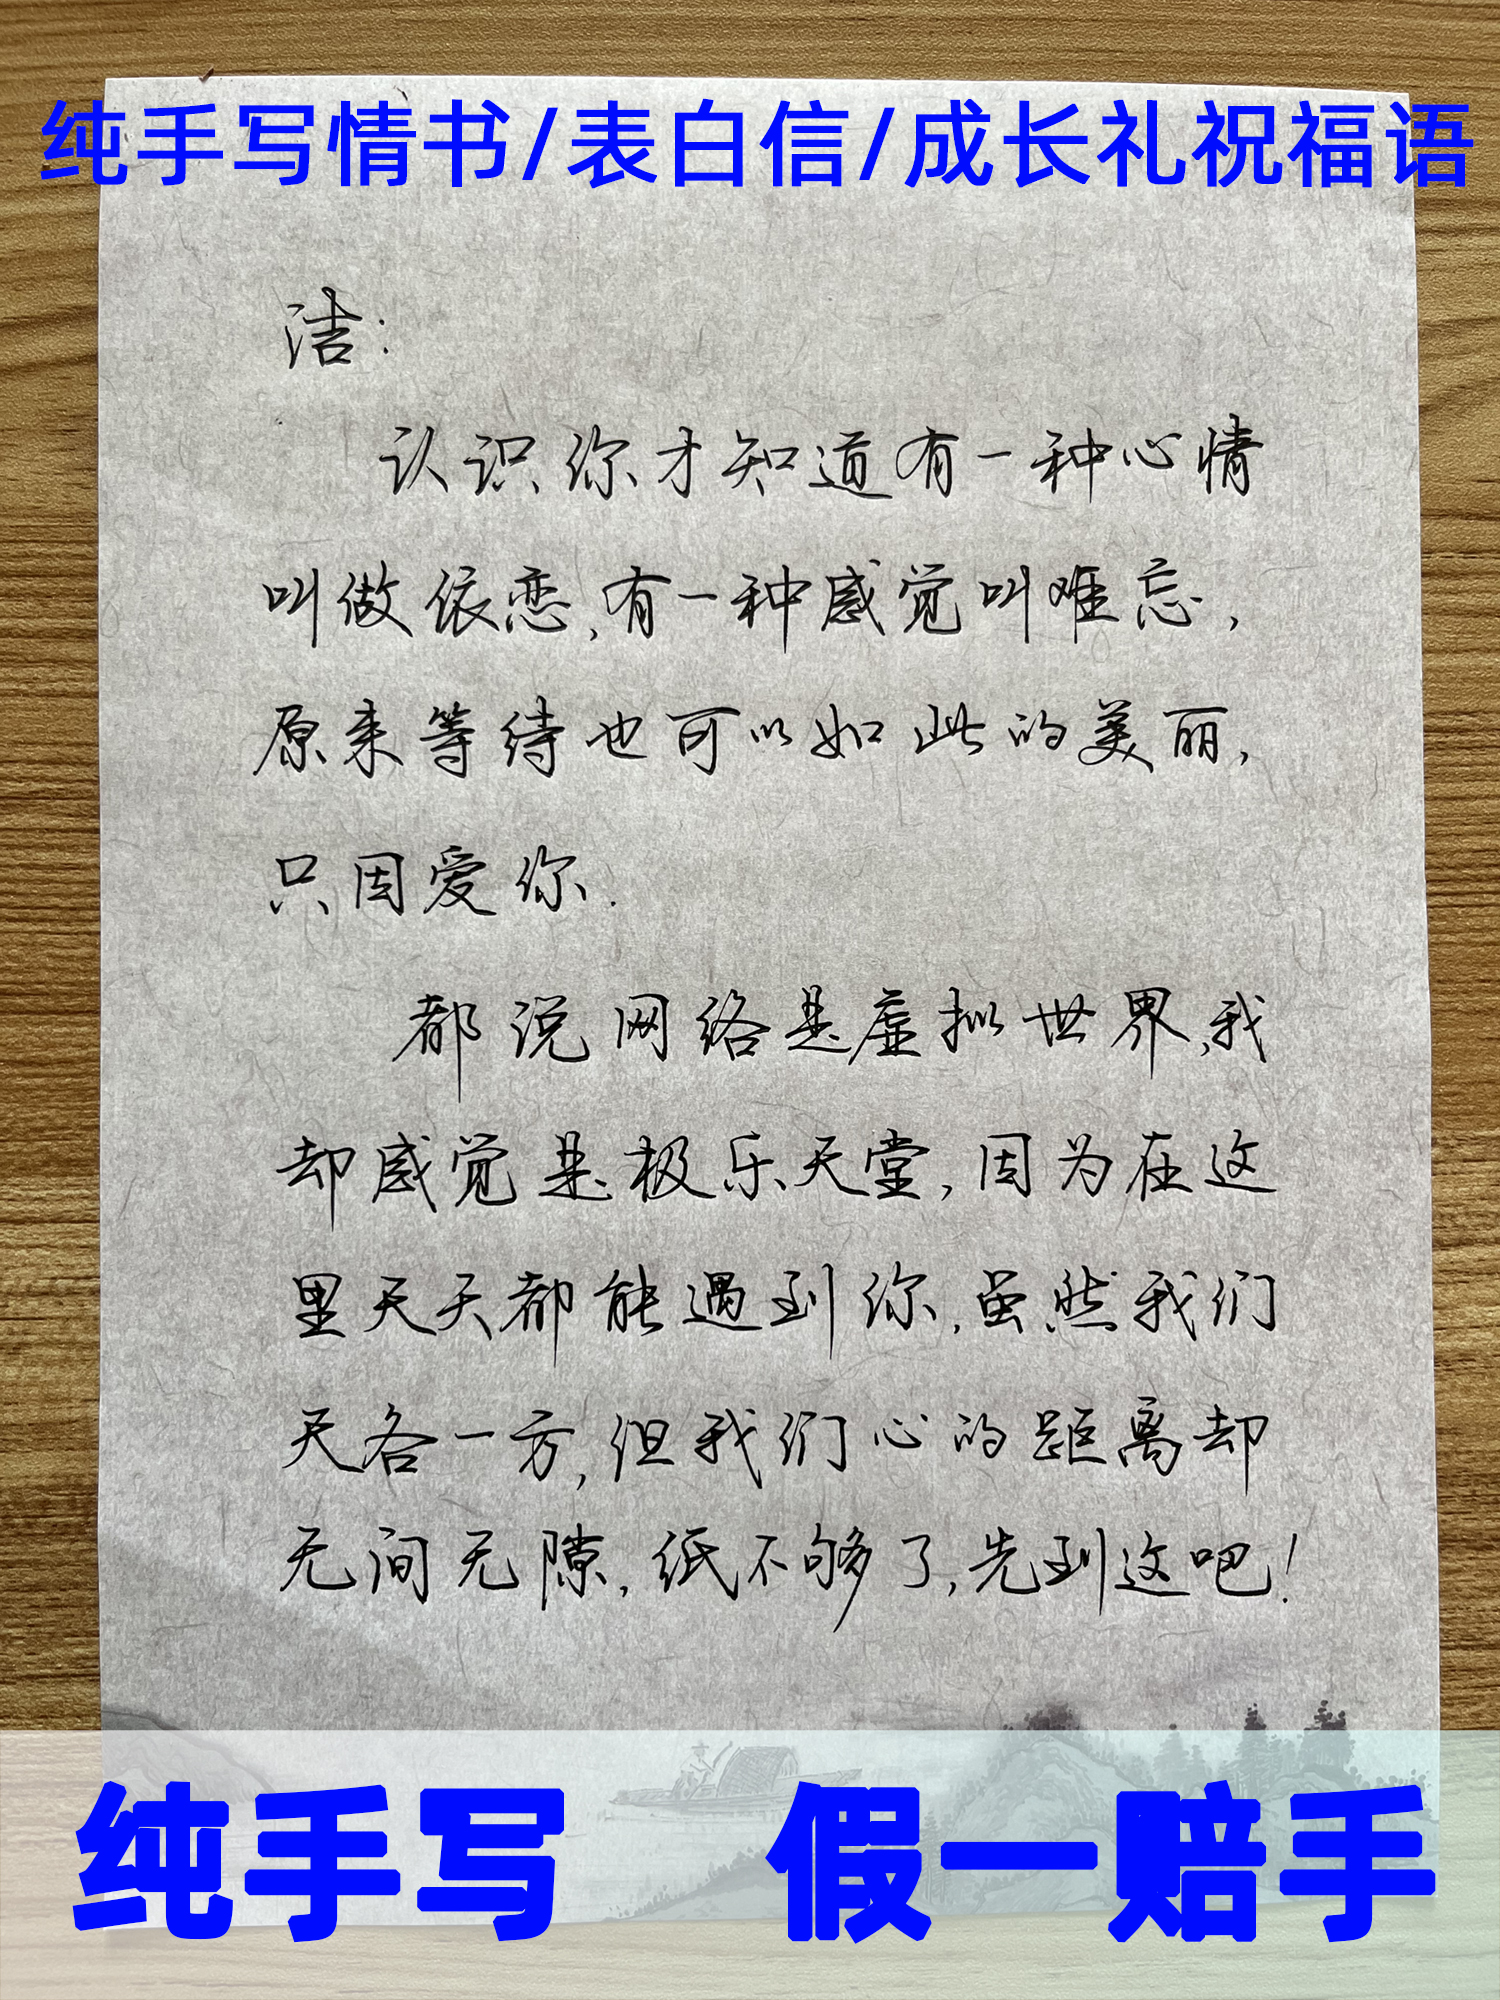 纯手写情书/表白信/成长礼祝福语
洁:
认识你才知道有一种心情
叫做依恋,有一种感觉叫难忘,
原来等待也可以如此的美丽,
只因爱你.
都说网络是虚拟世界,我
却感觉是极乐天堂,因为在这
里天天都能遇到你,虽然我们
天各一方,但我们心的距离却
无间无隙,纸不够了,先到这吧!
纯手写 假一赔手